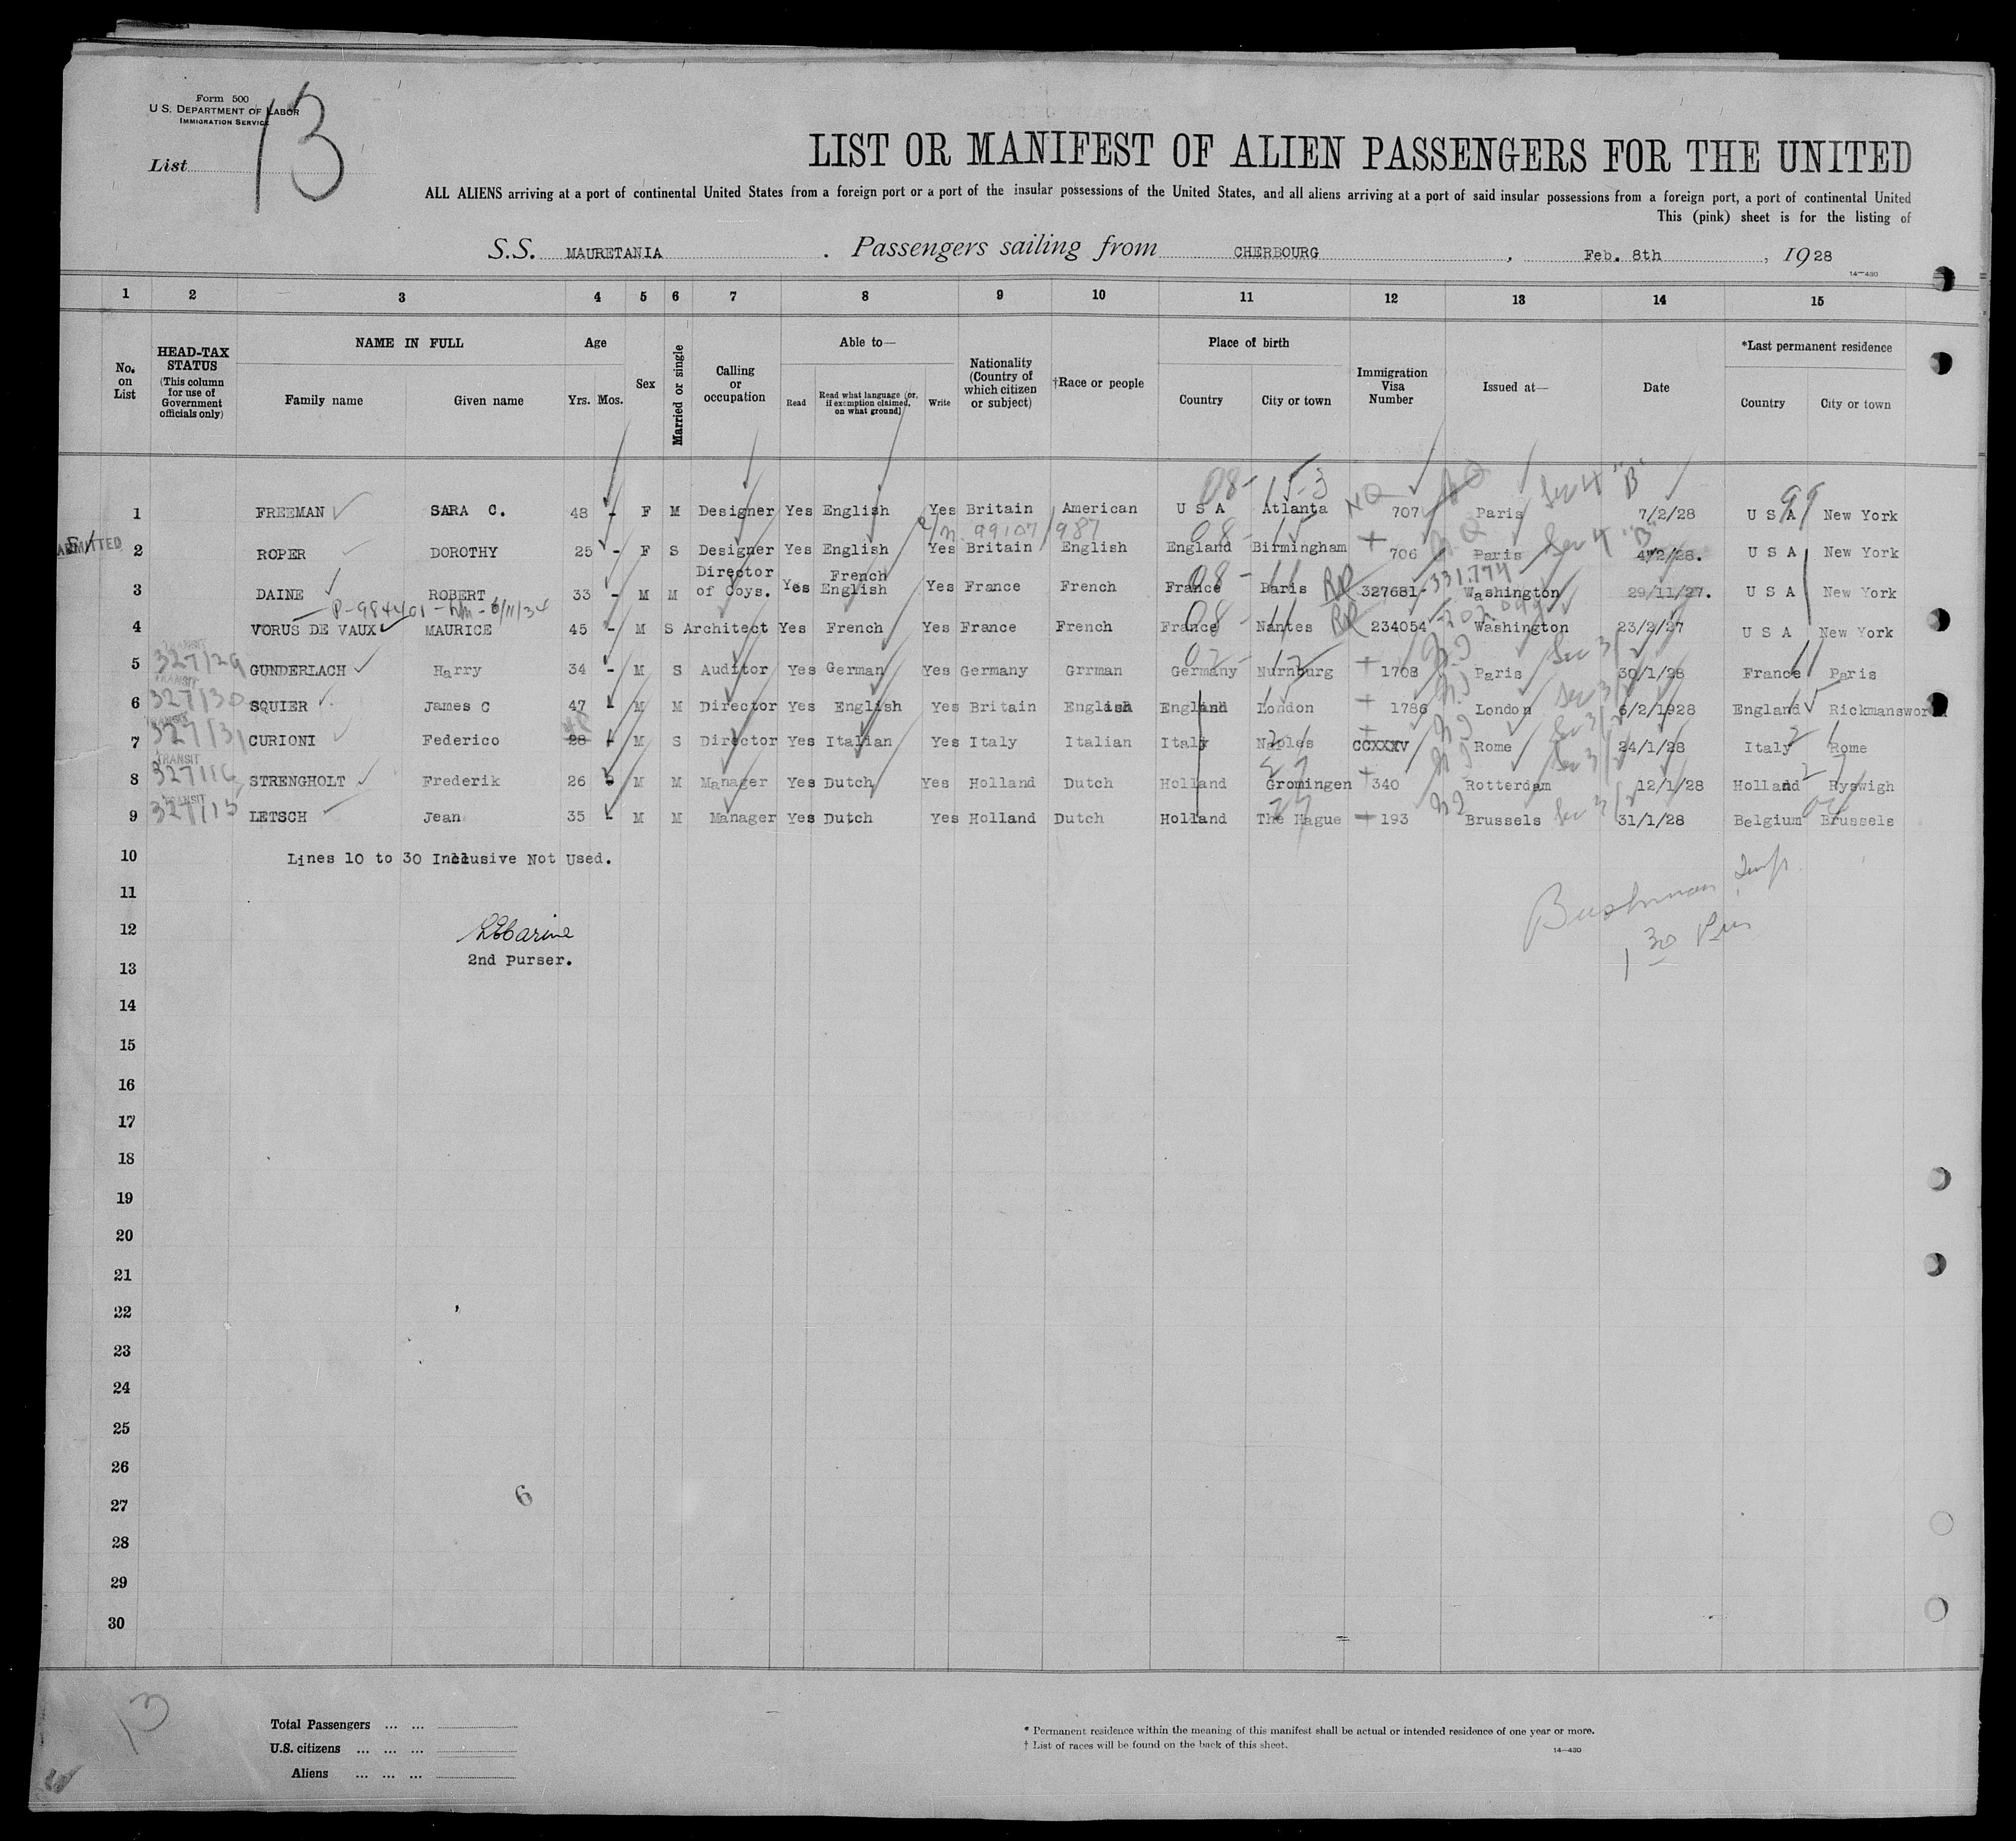 Form 500
U S. DEPARTMENT OF LABOR
IMMIGRATION SERVICE
List 13
LIST OR MANIFEST OF ALIEN PASSENGERS FOR THE UNITED
ALL ALIENS arriving at a port of continental United States from a foreign port or a port of the insular possessions of the United States, and all aliens arriving at a port of said insular possessions from a foreign port, a port of continental United
This (pink) sheet is for the listing of
S.S. MAURETANIA . Passengers sailing from CHERBOURG , Feb. 8th , 1928
14—430
1 2 3 4 5 6 7 8 9 10 11 12 13 14 15
No. on List
HEAD-TAX STATUS (This column for use of Government officials only)
NAME IN FULL
Family name Given name
Age
Yrs. Mos.
Sex
Married or single
Calling or occupation
Able to—
Read Read what language (or, if exemption claimed, on what ground) Write
Nationality (Country of which citizen or subject)
†Race or people
Place of birth
Country City or town
Immigration Visa Number
Issued at—
Date
*Last permanent residence
Country City or town
08- 15-3 NQ Sec 4 "B" 99
1 FREEMAN SARA C. 48 - F M Designer Yes English Yes Britain American U S A Atlanta 707 Paris 7/2/28 U S A New York
99107/987 08- 11 NQ Sec 4 "B"
ADMITTED 2 ROPER DOROTHY 25 - F S Designer Yes English Yes Britain English England Birmingham 706 Paris 4/2/28. U S A New York
3 DAINE ROBERT 33 - M M Director of Coys. Yes French English Yes France French France Paris RP 327681- 331.774 Washington 29/11/27. U S A New York
P-984401 - 6/11/34
4 VORUS DE VAUX MAURICE 45 - M S Architect Yes French Yes France French France Nantes RP 234054 Washington 23/2/27 U S A New York
TRANSIT
327/29 5 GUNDERLACH Harry 34 - M S Auditor Yes German Yes Germany Grrman Germany Nurnburg 1708 Paris Sec 3/2 30/1/28 France Paris
TRANSIT
327/30 6 SQUIER James C 47 - M M Director Yes English Yes Britain English England London 1786 London Sec 3/2 6/2/1928 England Rickmansworth
TRANSIT
327/31 7 CURIONI Federico 28 - M S Director Yes Italian Yes Italy Italian Italy Naples CCXXXV Rome Sec 3/2 24/1/28 Italy Rome
TRANSIT
8 STRENGHOLT Frederik 26 M M Manager Yes Dutch Yes Holland Dutch Holland Gromingen 340 Rotterdam Sec 3/2 12/1/28 Holland Ryswigh
TRANSIT
327/15 9 LETSCH Jean 35 - M M Manager Yes Dutch Yes Holland Dutch Holland The Hague 193 Brussels Sec 3/2 31/1/28 Belgium Brussels
10 Lines 10 to 30 Inclusive Not Used.
11
12
2nd Purser.
13
14
15
16
17
18
19
20
21
22
23
24
25
26
27
6
28
29
30
13
Total Passengers ... ...
U.S. citizens ... ... ...
Aliens ... ... ...
* Permanent residence within the meaning of this manifest shall be actual or intended residence of one year or more.
† List of races will be found on the back of this sheet.
14—430